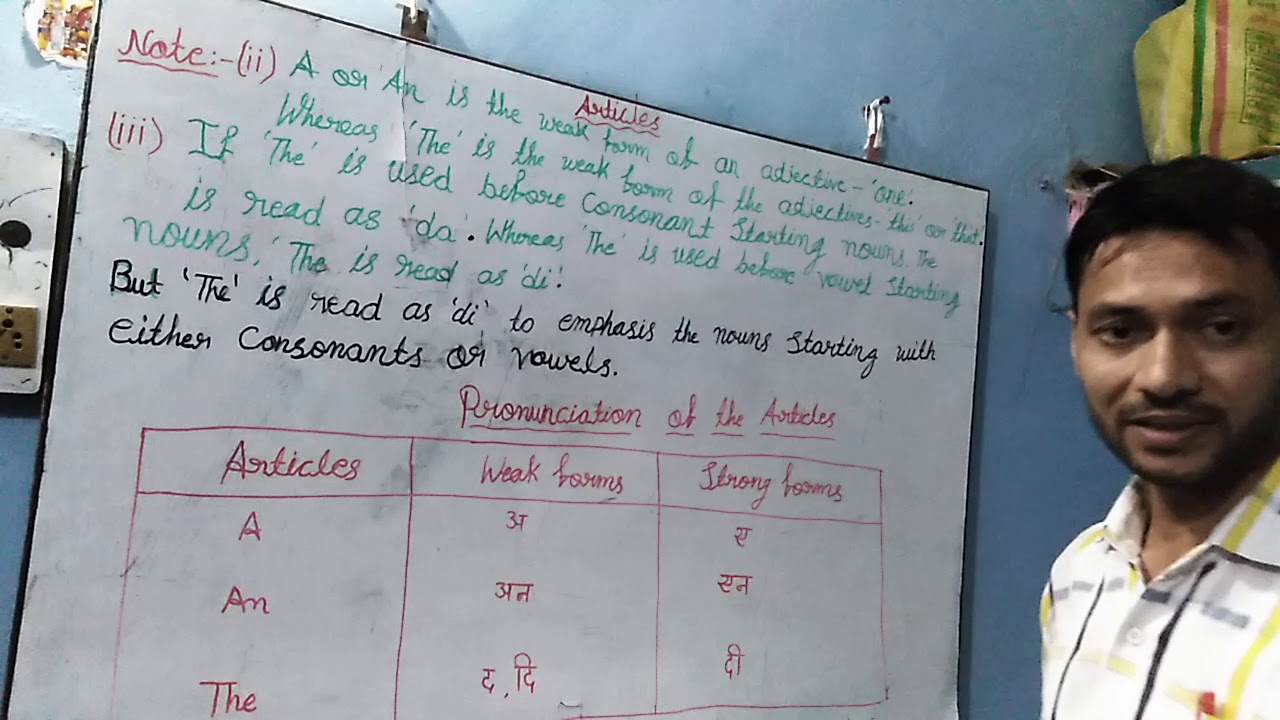 Articles
Note:-(ii) A or An is the weak form of an adjective-'one'.
Whereas 'The' is the weak form of the adjectives-'this' or 'that'.
(iii) If 'The' is used before Consonant Starting nouns. The
is read as 'da'. Whereas 'The' is used before vowel Starting
nouns, 'The is read as 'di'.
But 'The' is read as 'di' to emphasis the nouns Starting with
either Consonants or vowels.
Pronunciation of the Articles
Articles Weak forms Strong forms
A अ ए
An अन एन
The द, दि दी